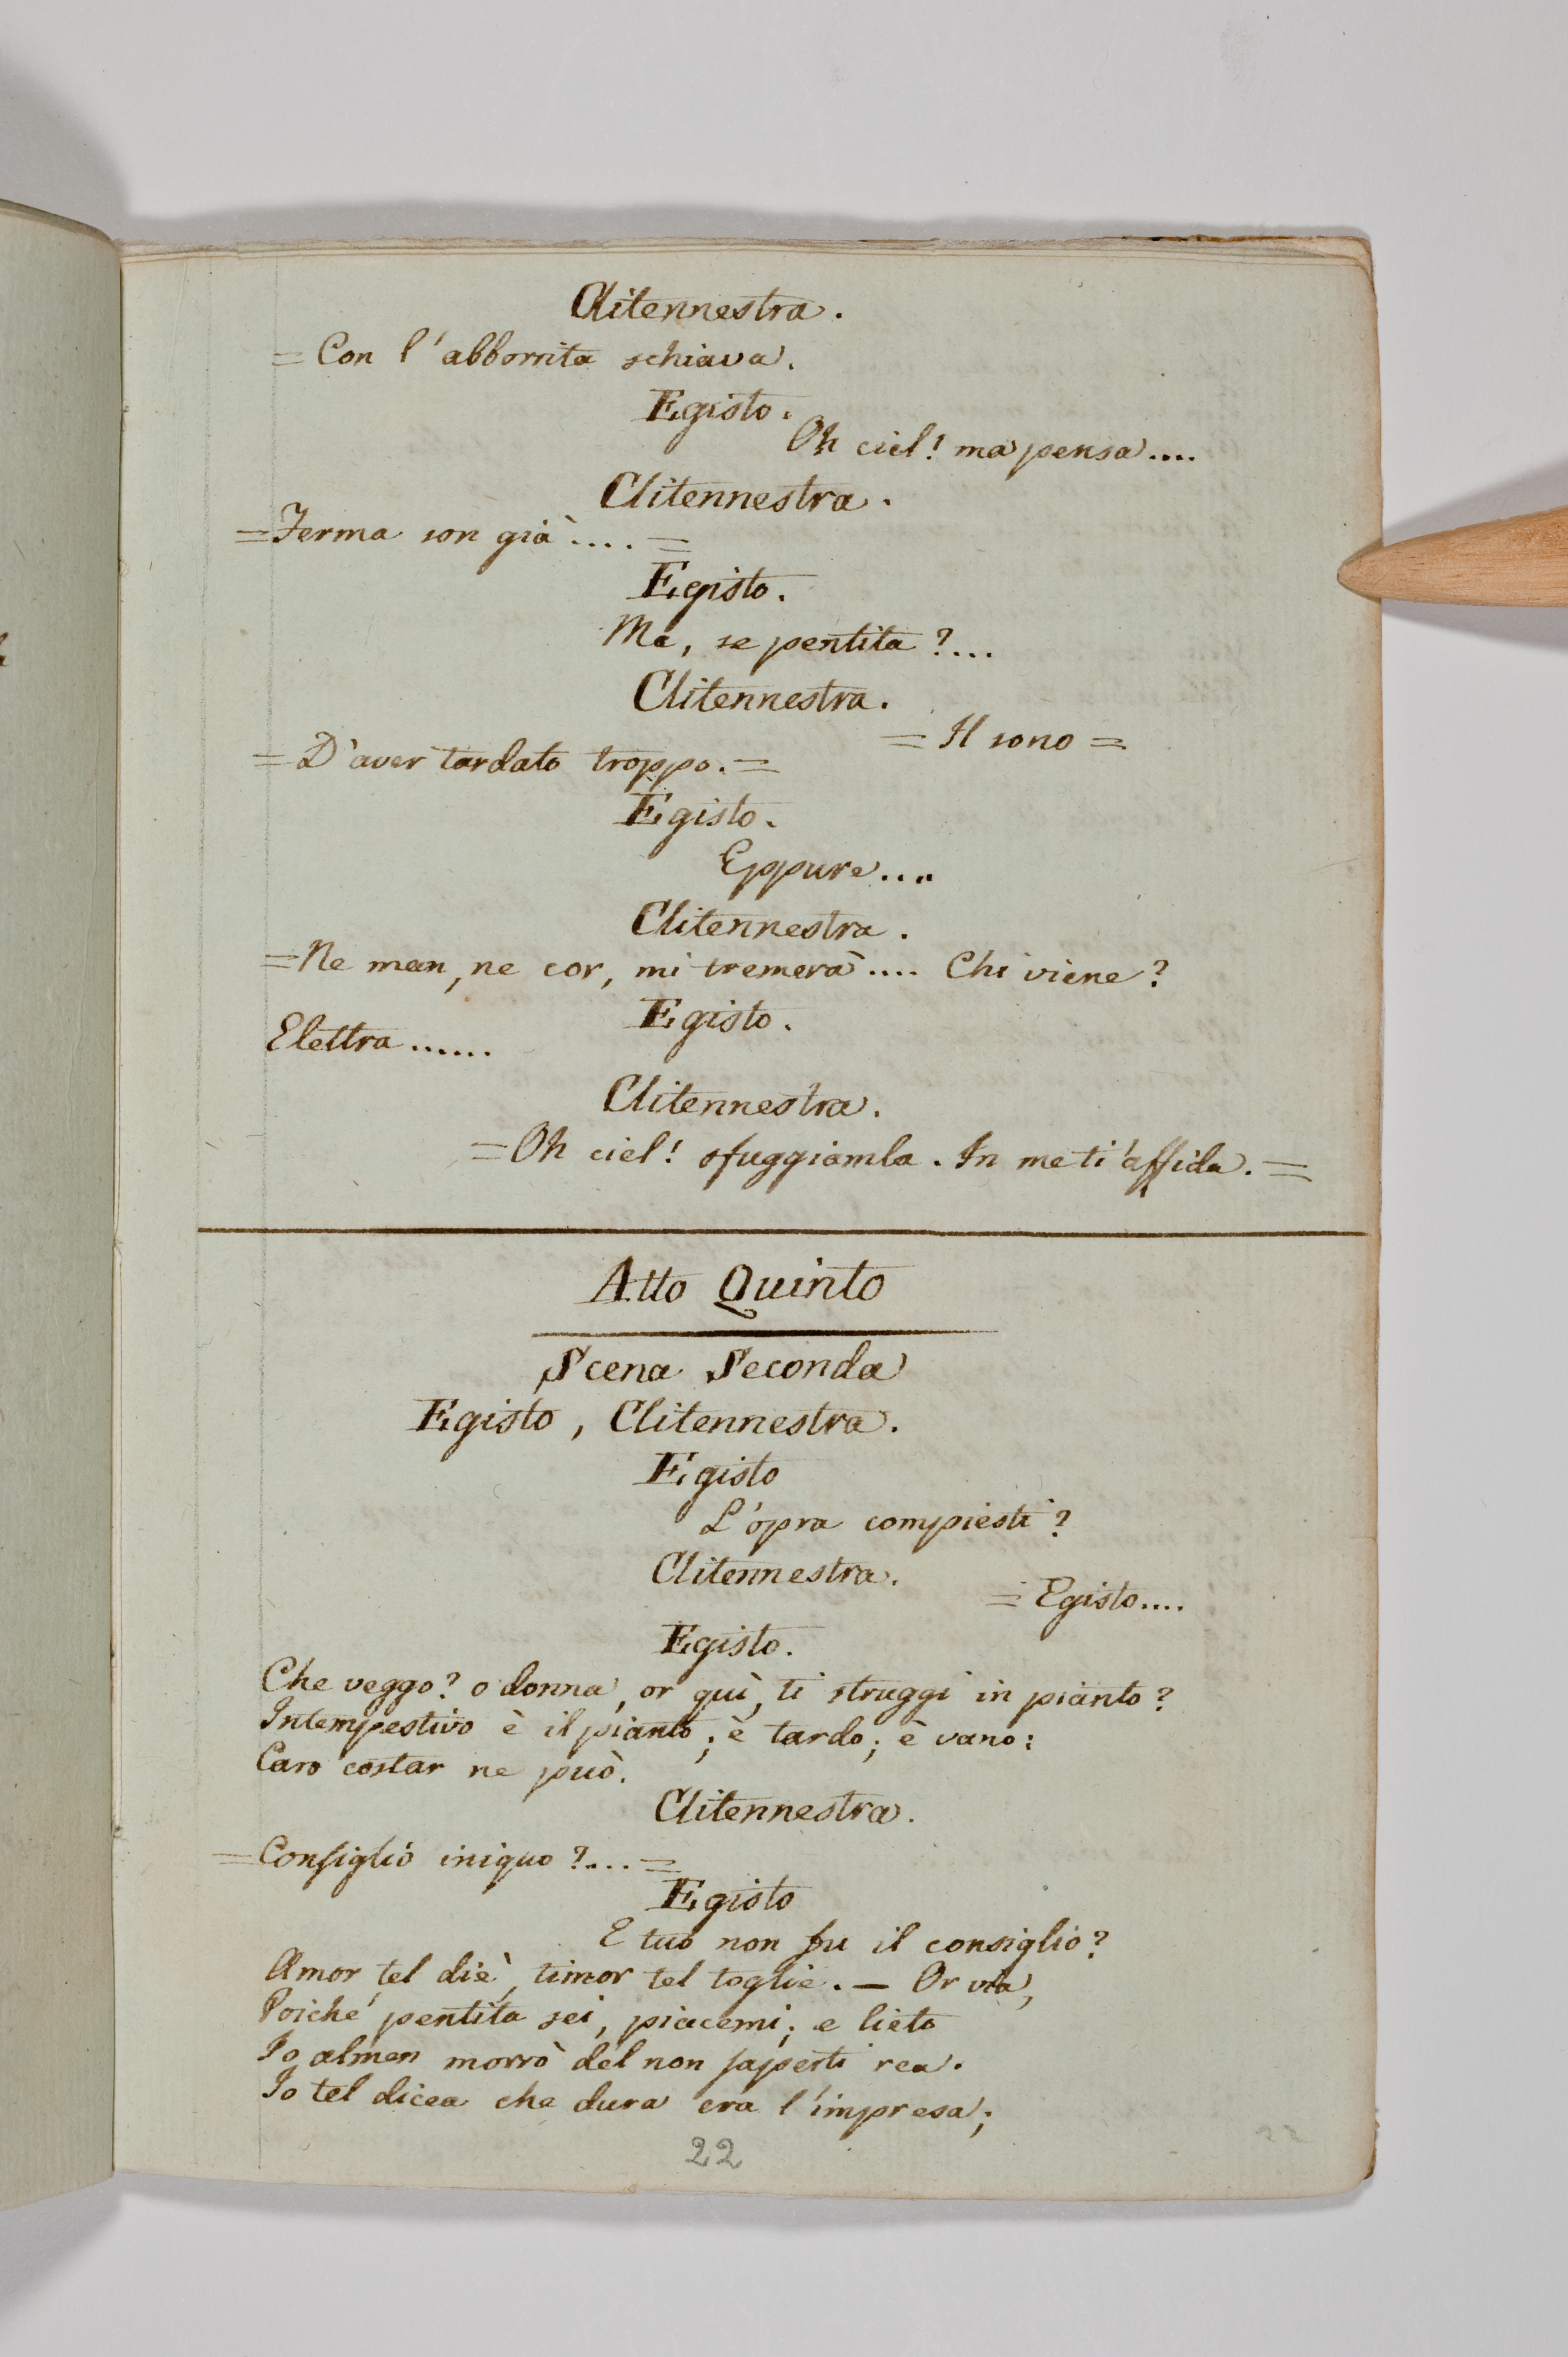 Clitennestra.
= Con l'abborrita schiava.
Egisto.
Oh ciel! ma pensa....
Clitennestra.
= Ferma son già.... =
Egisto.
Ma, se pentita?...
Clitennestra.
= Il sono =
= D'aver tardato troppo. =
Egisto.
Eppure....
Clitennestra.
= Ne man, ne cor, mi tremerà.... Chi viene?
Egisto.
Elettra......
Clitennestra.
= Oh ciel! sfuggiamla. In me ti affida. =
Atto Quinto
Scena Seconda
Egisto, Clitennestra.
Egisto
L'opra compiesti?
Clitennestra.
= Egisto....
Egisto.
Che veggo? o donna, or quì, ti struggi in pianto?
Intempestivo è il pianto; è tardo; è vano:
Caro costar ne può.
Clitennestra.
= Consiglio iniquo?.... =
Egisto
E tuo non fu il consiglio?
Amor tel diè, timor tel toglie. — Or via,
Poiché pentita sei, piacemi; e lieto
Io almen morrò del non saperti rea.
Io tel dicea che dura era l'impresa;
22